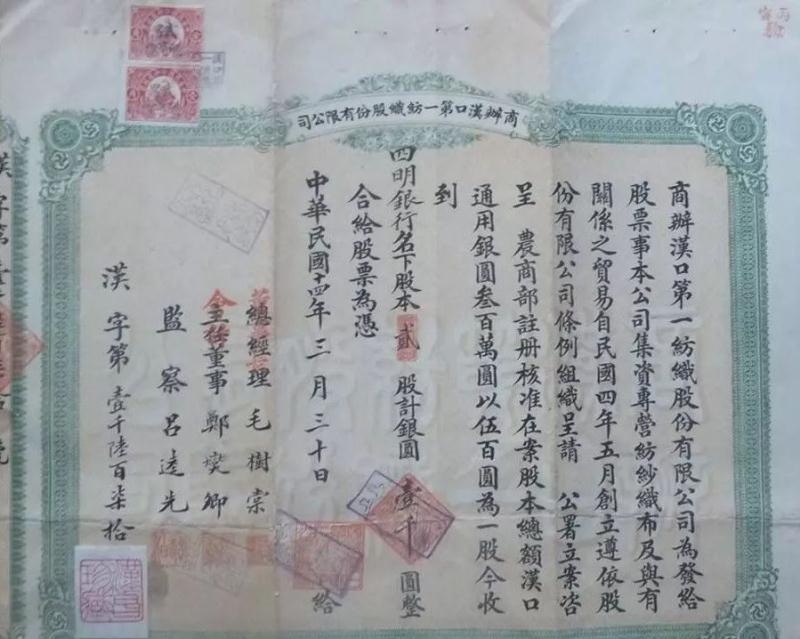 商辦漢口第一紡織股份有限公司
商辦漢口第一紡織股份有限公司為發給
股票事本公司集資專營紡紗織布及與有
關係之貿易自民國四年五月創立遵依股
份有限公司條例組織呈請 公署立案咨
呈 農商部註册核准在案股本總額漢口
通用銀圓叁百萬圓以伍百圓為一股今收
到
四明銀行名下股本貳股計銀圓壹千圓整
合給股票為憑
中華民國十四年三月三十日 給
總經理 毛樹棠
主任董事 鄭燮卿
監察 呂逵先
漢字第壹千陸百柒拾
漢字第